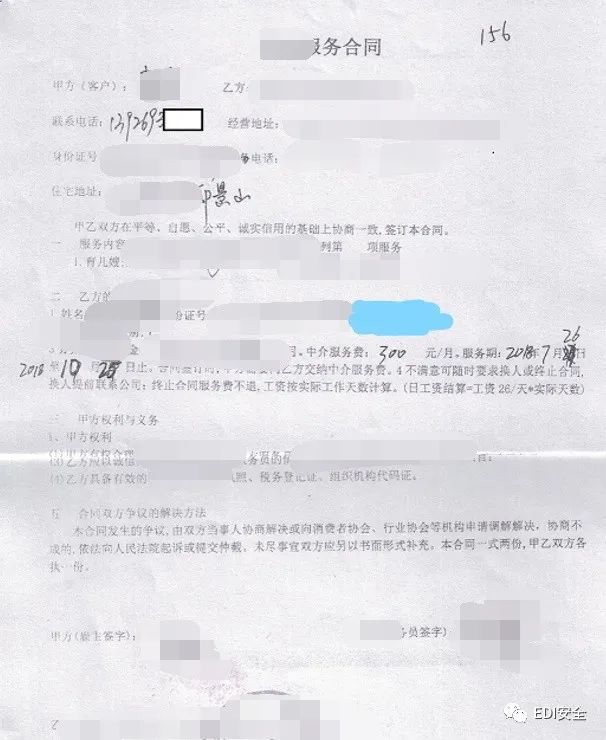 服务合同
156
甲方（客户）：
乙方
联系电话：139269
经营地址：
身份证号
电话：
住宅地址：
景山
甲乙双方在平等、自愿、公平、诚实信用的基础上协商一致,签订本合同。
一 服务内容 列第 项服务
1.育儿嫂
二 乙方的
1.姓名 份证号
金 中介服务费：300 元/月。服务期：2018年7月26日
2018 10 25 日止。合同签订时, 乙方交纳中介服务费。4不满意可随时要求换人或终止合同,
换人提前联系公司；终止合同服务费不退,工资按实际工作天数计算。(日工资结算=工资26/天*实际天数)
三 甲方权利与义务
1、甲方权利
(1)甲方有权合理
(3)乙方应以诚信
(4)乙方具备有效的 照、税务登记证、组织机构代码证。
五 合同双方争议的解决方法
本合同发生的争议,由双方当事人协商解决或向消费者协会、行业协会等机构申请调解解决，协商不
成的,依法向人民法院起诉或提交仲裁。未尽事宜双方应另以书面形式补充。本合同一式两份,甲乙双方各
执一份。
甲方(雇主签字)：
务员签字)
乙
EDI安全